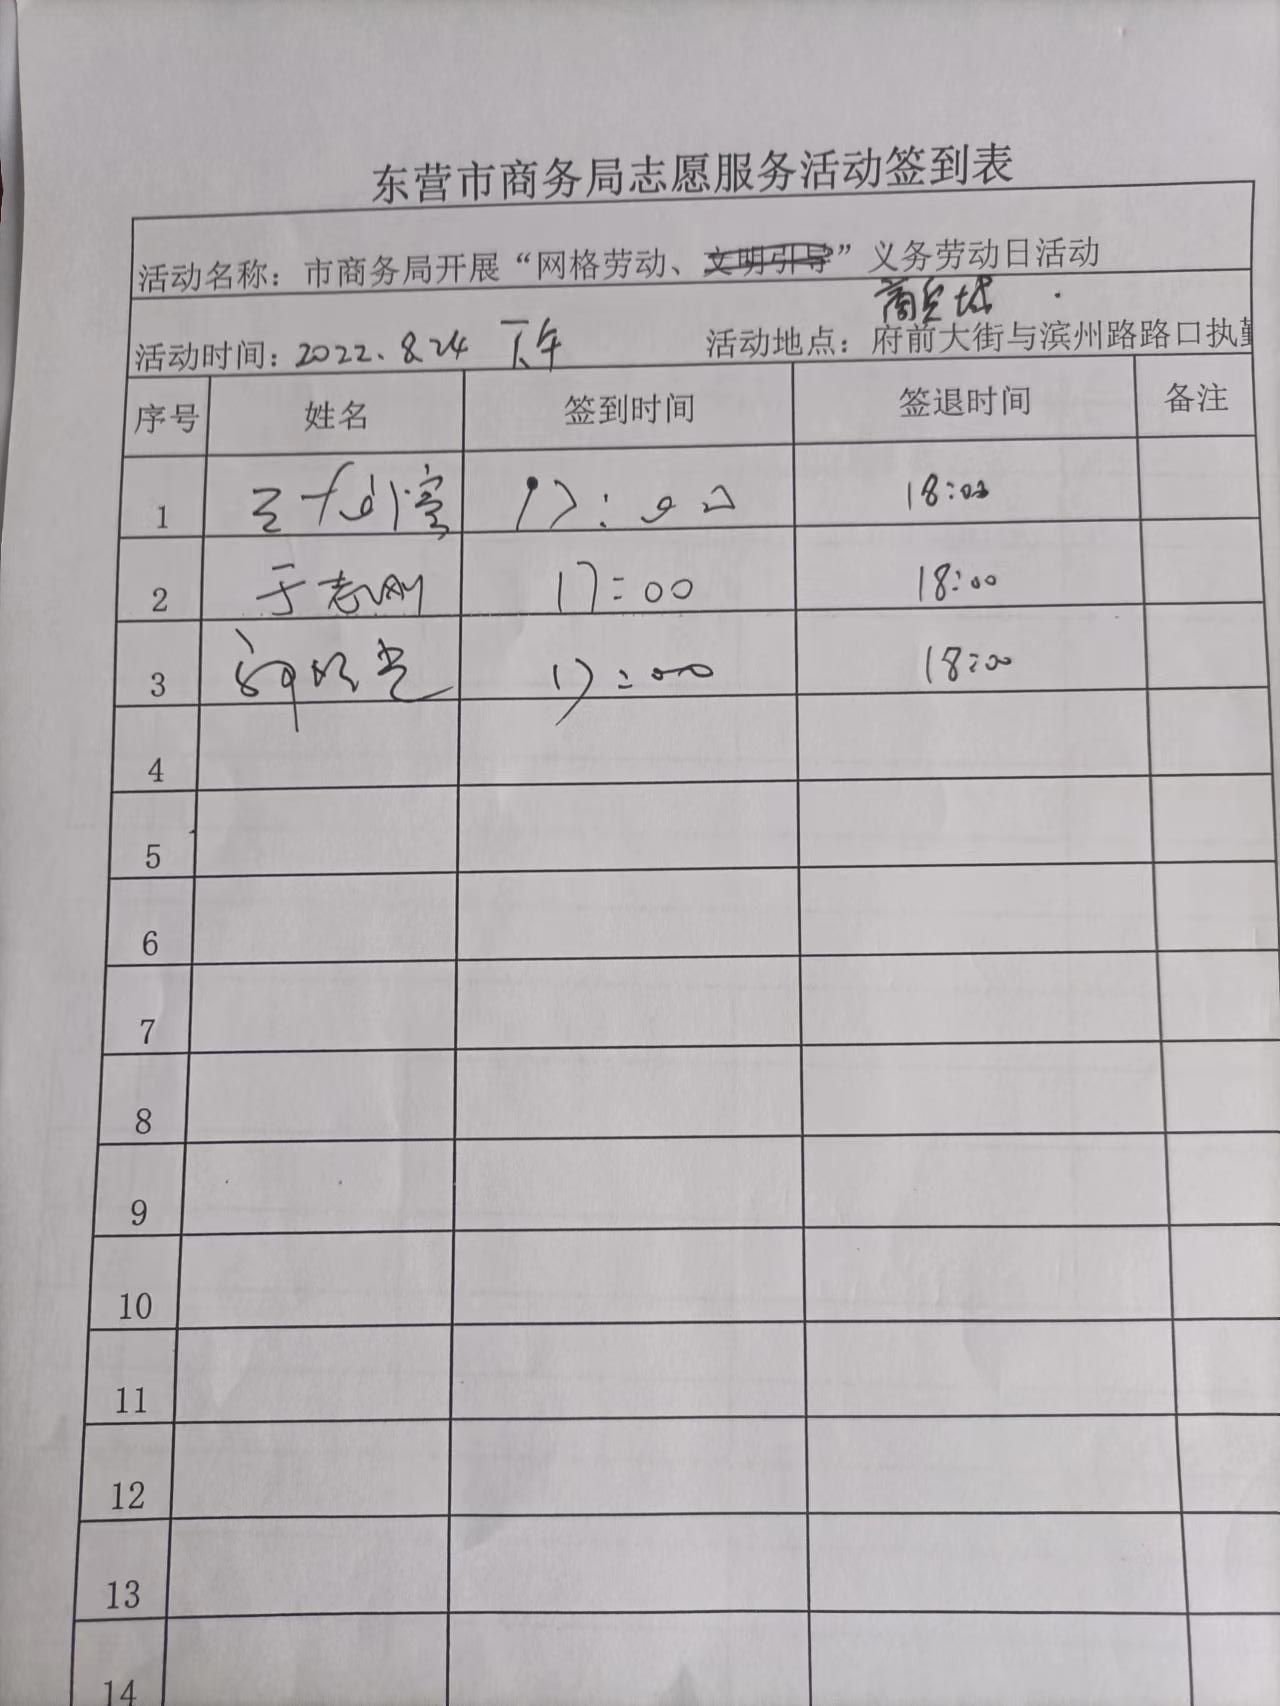 东营市商务局志愿服务活动签到表
活动名称：市商务局开展“网格劳动、文明引导”义务劳动日活动
商贸城
活动时间：2022.8.24 下午 活动地点：府前大街与滨州路路口执勤
序号 姓名 签到时间 签退时间 备注
1 17:00 18:00
2 于志刚 17:00 18:00
3 17:00 18:00
4
5
6
7
8
9
10
11
12
13
14